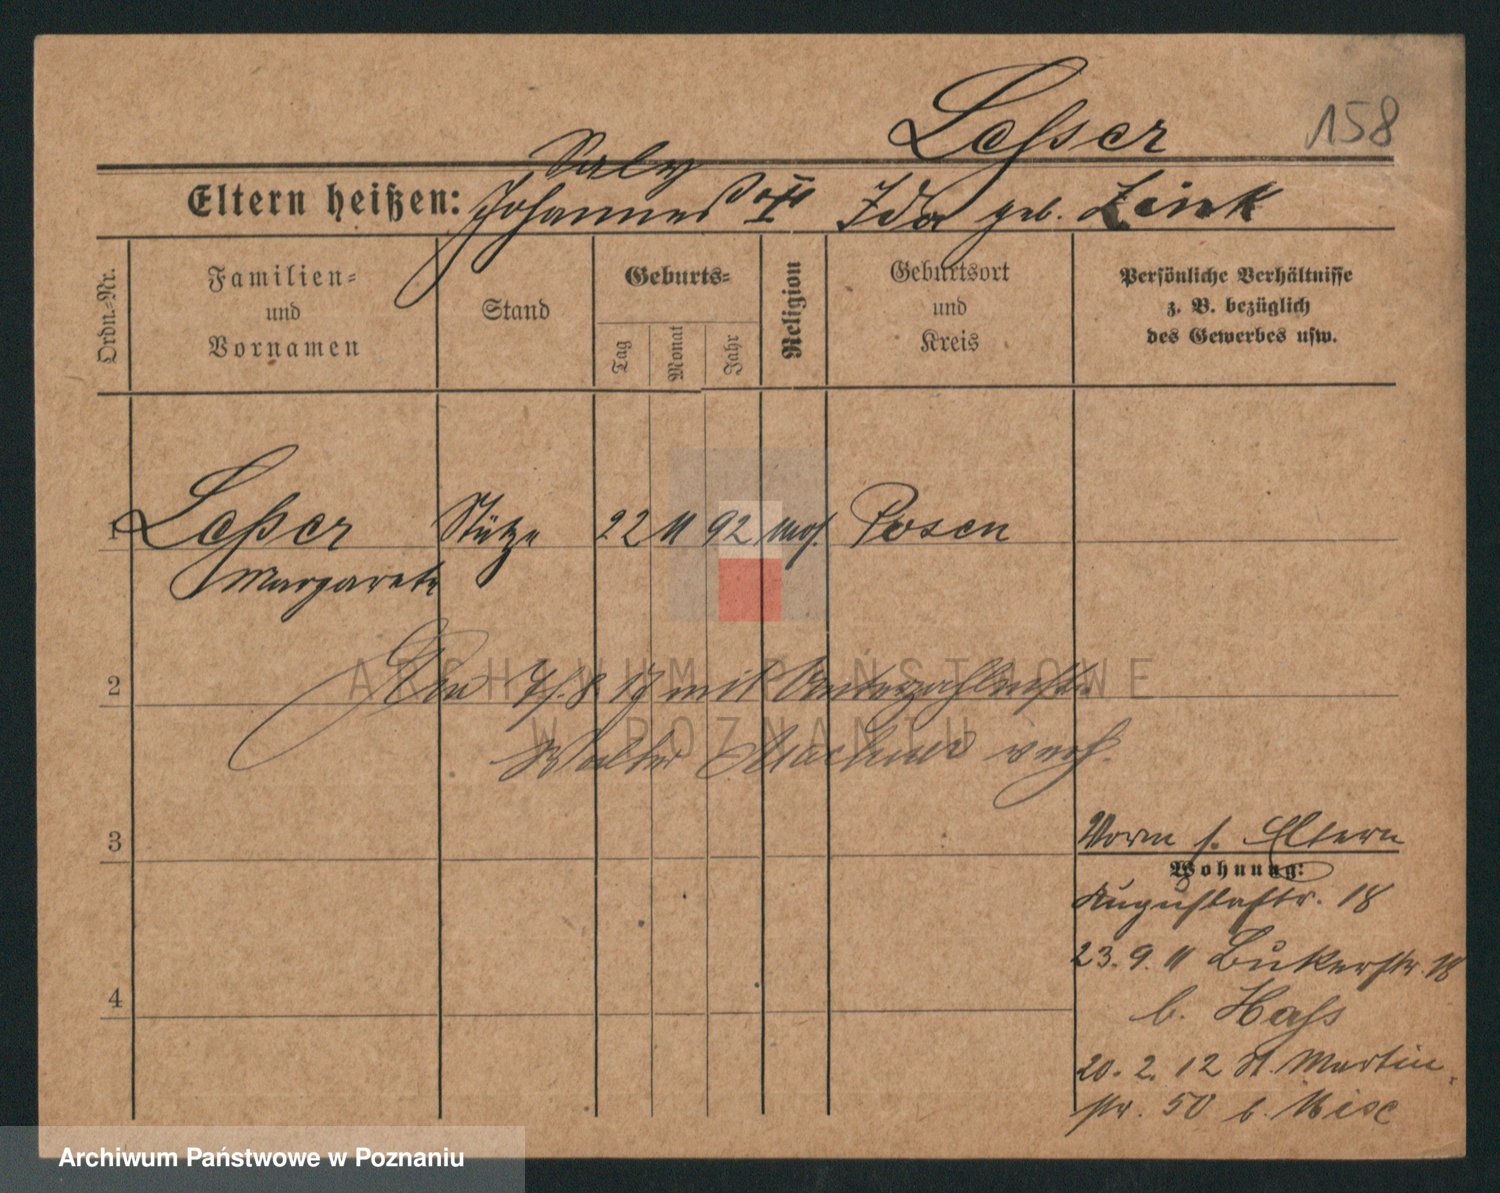 Lesser
158
Saly
Eltern heißen: Johannes Ida geb. Link
Ordn.-Nr.
Familien-
und
Vornamen
Stand
Geburts-
Tag
Monat
Jahr
Religion
Geburtsort
und
Kreis
Persönliche Verhältnisse
z. B. bezüglich
des Gewerbes usw.
1 Lesser Stütze 22 11 92 mos. Posen
Margarete
2
Den 7/8 17 mit
Walter verh.
3
4
Vorm s. Eltern
Wohnung:
Augustastr. 18
23. 9. 11 Bukerstr. 18
b. Hass
20. 2. 12 St. Martin
str. 50 b.
ARCHIWUM PAŃSTWOWE
W POZNANIU
Archiwum Państwowe w Poznaniu